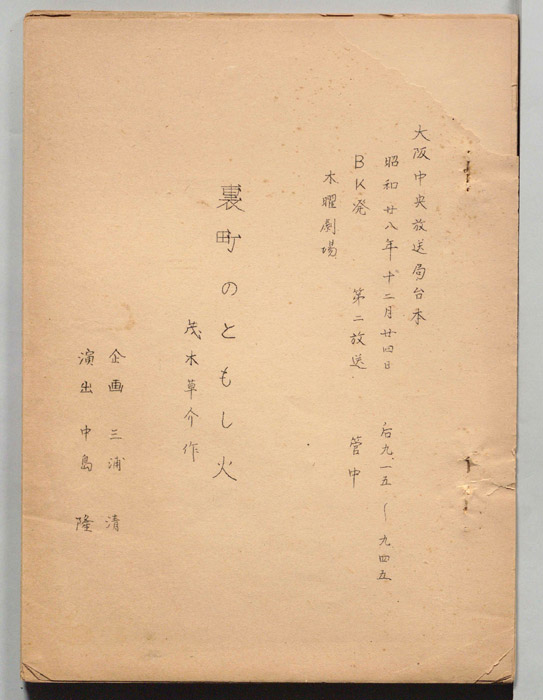 大阪中央放送局台本
昭和廿八年十二月廿四日 后九.一五〜九四五
BK発 第二放送 管中
木曜劇場
裏町のともし火
茂木草介作
企画 三浦清
演出 中島隆